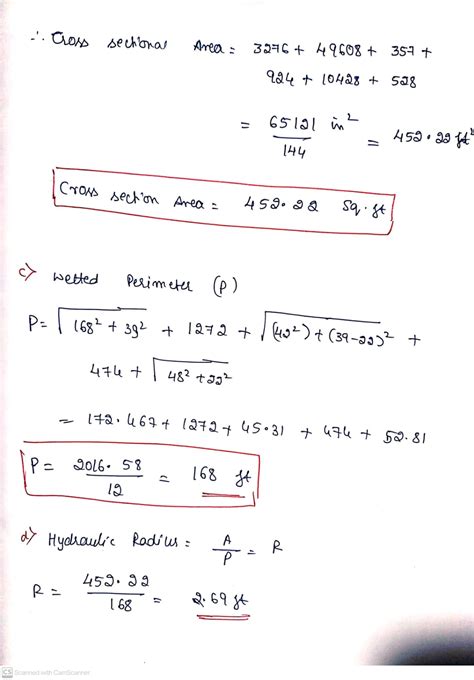 ∴ Cross sectional Area = 3276 + 49608 + 357 +
924 + 10428 + 528
= 65121 in² / 144 = 452.22 ft²
Cross section Area = 452.22 Sq.ft
c) Wetted Perimeter (P)
P = √(168² + 39²) + 1272 + √((42²) + (39-22)²) +
474 + √(48² + 22²)
= 172.467 + 1272 + 45.31 + 474 + 52.81
P = 2016.58 / 12 = 168 ft
d) Hydraulic Radius = A / P = R
R = 452.22 / 168 = 2.69 ft
CS Scanned with CamScanner